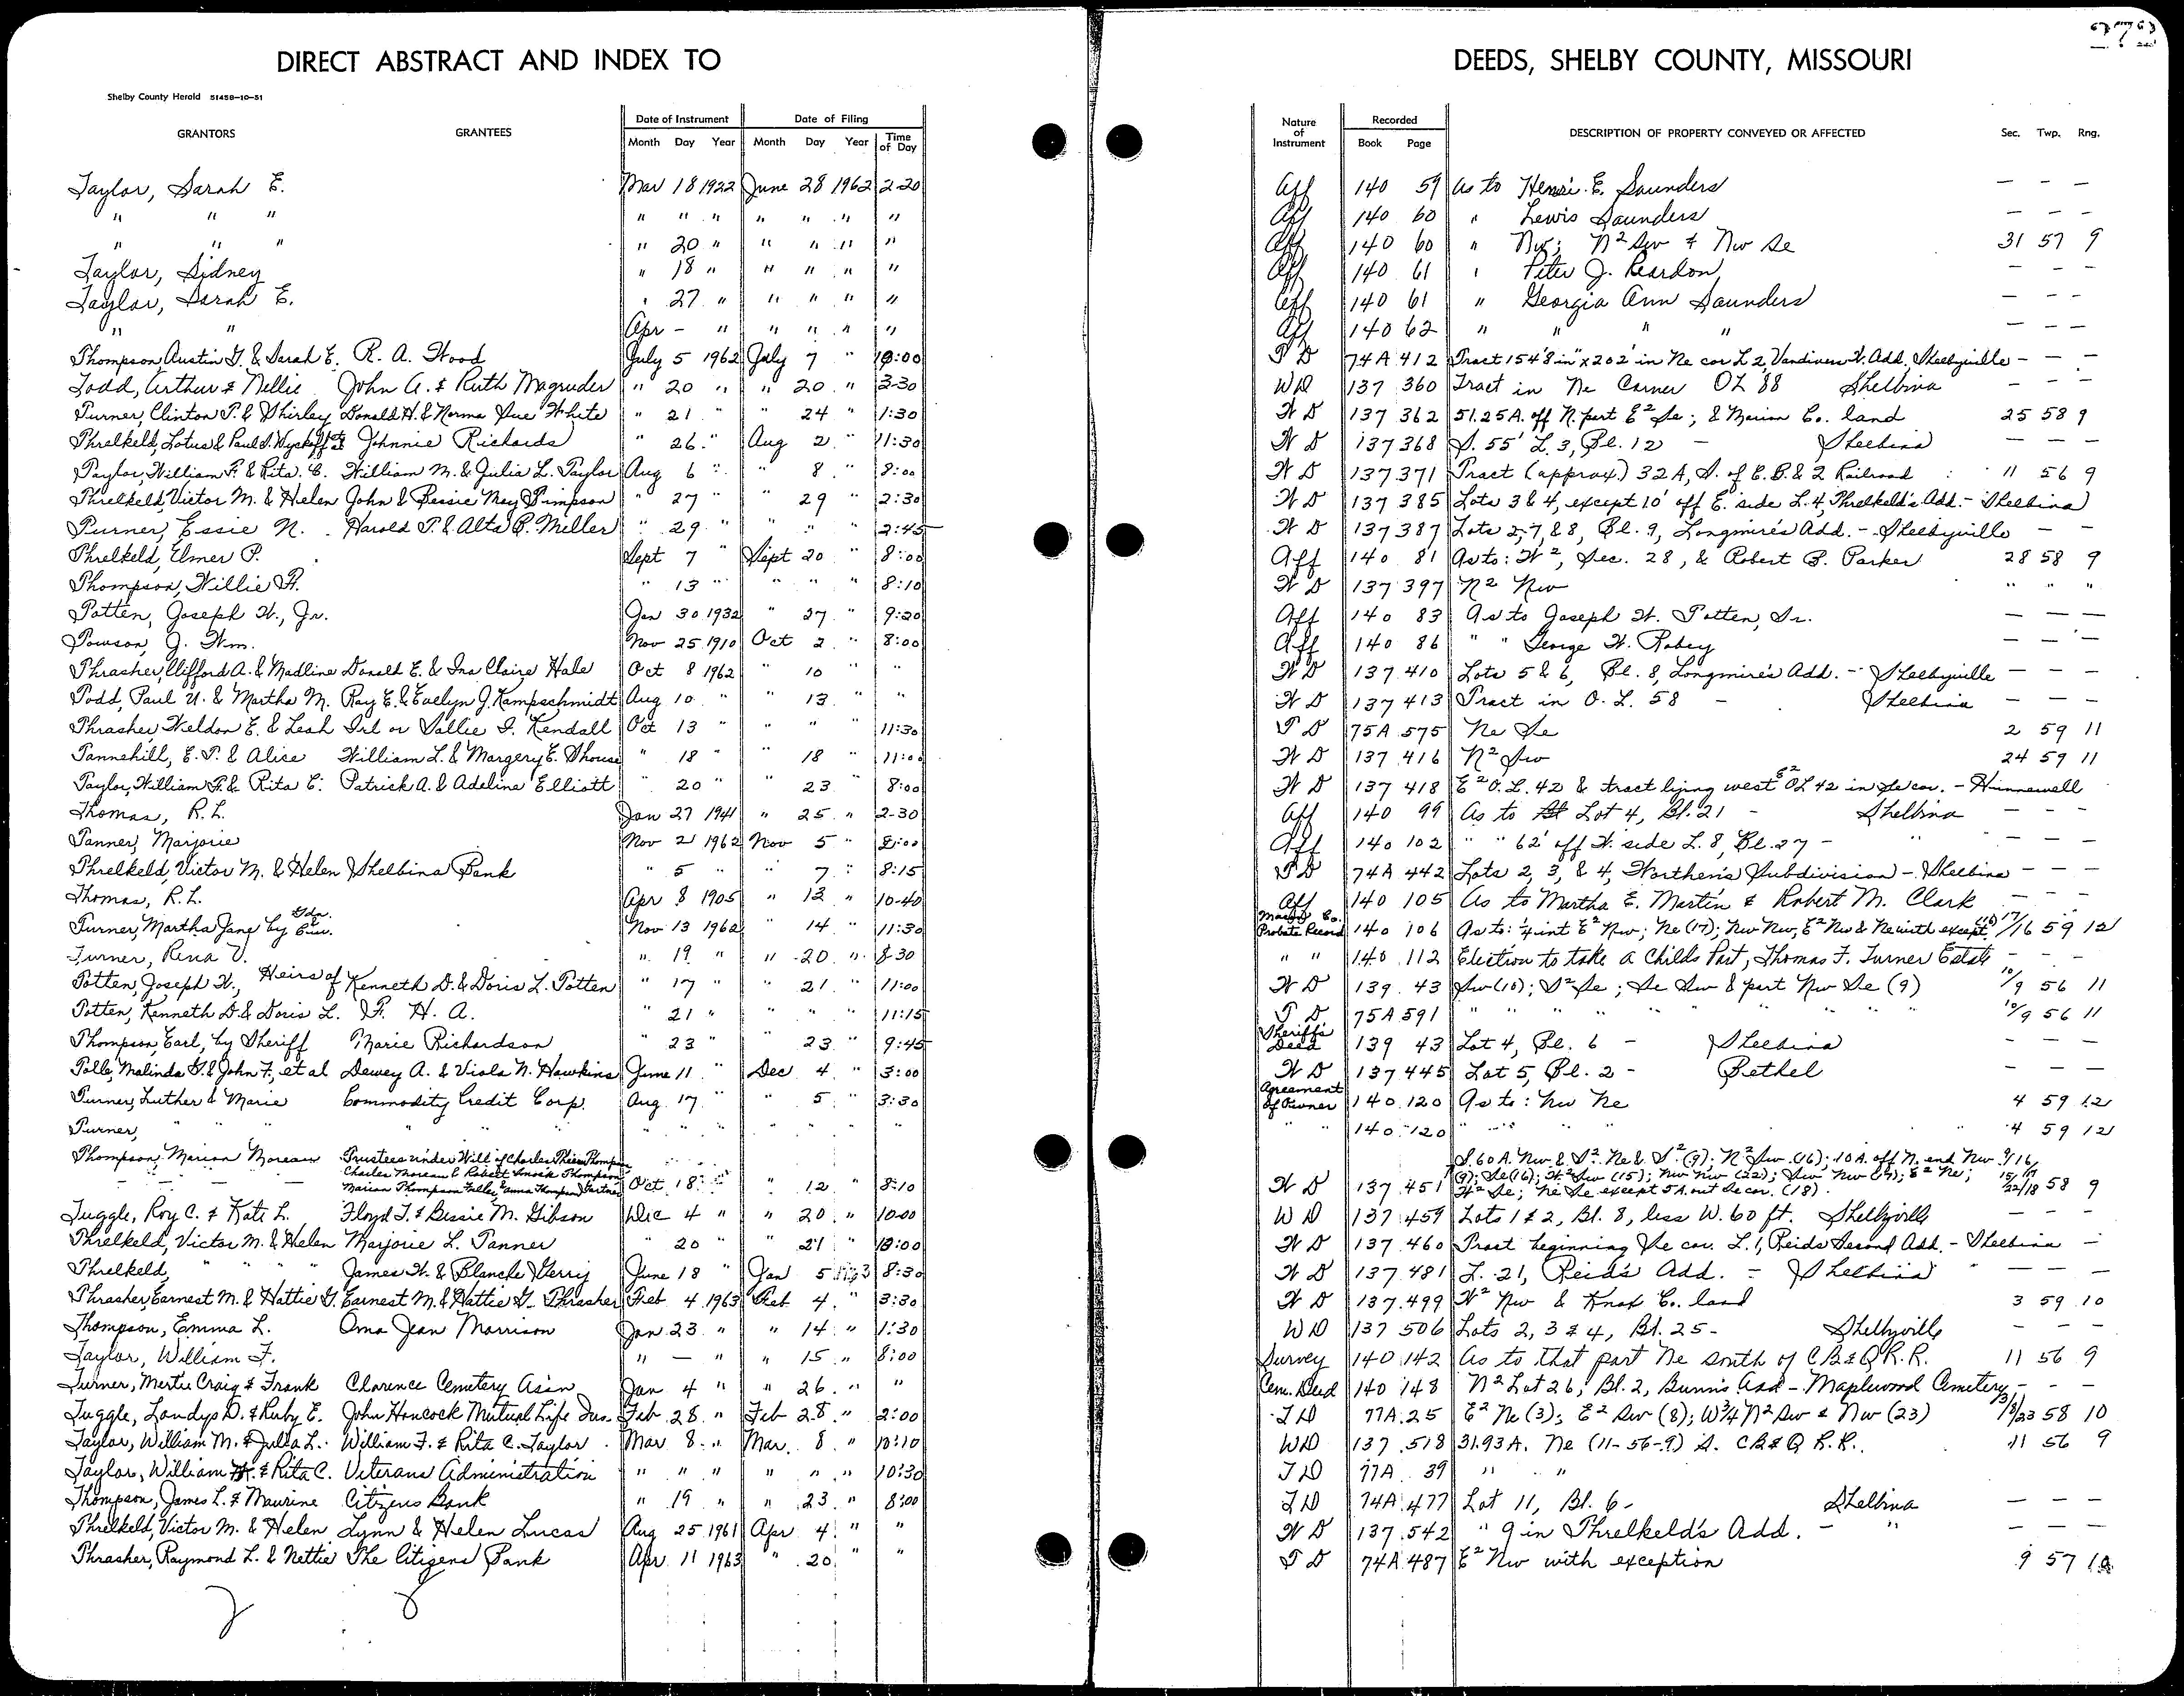 272
DIRECT ABSTRACT AND INDEX TO DEEDS, SHELBY COUNTY, MISSOURI
Shelby County Herald 51458-10-51
GRANTORS GRANTEES Date of Instrument Date of Filing Nature of Instrument Recorded DESCRIPTION OF PROPERTY CONVEYED OR AFFECTED Sec. Twp. Rng.
Month Day Year Month Day Year Time of Day Book Page
Taylor, Sarah E. Mar 18 1922 June 28 1962 2-20 Aff 140 59 As to Henri E. Saunders — — —
" " " " " " " " " " Aff 140 60 " Lewis Saunders — — —
" " " " 20 " " " " " Aff 140 60 " Nw; N² Sw & Nw Se 31 57 9
Taylor, Sidney " 18 " " " " " Aff 140 61 " Peter J. Reardon, — — —
Taylor, Sarah E. " 27 " " " " " Aff 140 61 " Georgia Ann Saunders — — —
" " Apr - " " " " " Aff 140 62 " " " " — — —
Thompson, Austin G. & Sarah E. R. A. Wood July 5 1962 July 7 " 10:00 T D 74A 412 Tract 154'8in" x 202' in Ne cor L 2, Vandiver W. Add. Shelbyville — — —
Todd, Arthur & Nellie John A. & Ruth Magruder " 20 " " 20 " 3-30 WD 137 360 Tract in Ne Corner OL 88 Shelbina — — —
Turner, Clinton T. & Shirley Donald H. & Norma Sue White " 21 " " 24 " 1:30 W D 137 362 51.25 A. off N. part E² Se; & Marion Co. land 25 58 9
Threlkeld, Lotus & Paul S. Wyckoff et al Johnnie Richards " 26 " Aug 2 " 11:30 W D 137 368 S. 55' L. 3, Bl. 12 — Shelbina — — —
Taylor, William F. & Rita C. William M. & Julia L. Taylor Aug 6 " " 8 " 8:00 W D 137 371 Tract (approx.) 32 A, S. of C. B. & Q Railroad 11 56 9
Threlkeld, Victor M. & Helen John & Bessie May Simpson " 27 " " 29 " 2:30 W D 137 385 Lots 3 & 4, except 10' off E. side L. 4, Threlkeld's Add. - Shelbina
Turner, Essie N. Harold T. & Alta C. Miller " 29 " " " " 2:45 W D 137 387 Lots 2, 7, & 8, Bl. 9, Longmire's Add. - Shelbyville — —
Threlkeld, Elmer P. Sept 7 " Sept 20 " 8:00 Aff 140 81 As to: W², Sec. 28, & Robert B. Parker 28 58 9
Thompson, Willie H. " 13 " " " " 8:10 W D 137 397 N² Nw " " "
Totten, Joseph W., Jr. Jan 30 1932 " 27 " 9:20 Aff 140 83 As to Joseph W. Totten, Sr. — — —
Towson, J. Wm. Nov 25 1910 Oct 2 " 8:00 Aff 140 86 " " George W. Robey — — —
Thrasher, Clifford A. & Madline Donald E. & Ina Claire Hale Oct 8 1962 " 10 " W D 137 410 Lots 5 & 6, Bl. 8, Longmire's Add. - Shelbyville — — —
Todd, Paul U. & Martha M. Ray E. & Evelyn J. Kampschmidt Aug 10 " " 13 " " W D 137 413 Tract in O. L. 58 — Shelbina — — —
Thrasher, Weldon E. & Leah Irl or Sallie I. Kendall Oct 13 " " " " 11:30 T D 75A 575 Ne Se 2 59 11
Tannehill, E. T. & Alice William L. & Margery E. Shouse " 18 " " 18 " 11:00 W D 137 416 N² Sw 24 59 11
Taylor, William F. & Rita C. Patrick A. & Adeline Elliott " 20 " " 23 " 8:00 W D 137 418 E² O. L. 42 & tract lying west E² OL 42 in Se cor. - Hunnewell
Thomas, R. L. Jan 27 1941 " 25 " 2-30 Aff 140 99 As to Lot 4, Bl. 21 — Shelbina — — —
Tanner, Marjorie Nov 2 1962 Nov 5 " 8:00 Aff 140 102 " " 62' off W. side L. 8, Bl. 27 — " — —
Threlkeld, Victor M. & Helen Shelbina Bank " 5 " " 7 " 8:15 T D 74A 442 Lots 2, 3, & 4, Worthen's Subdivision - Shelbina — — —
Thomas, R. L. Apr 8 1905 " 13 " 10-40 Aff 140 105 As to Martha E. Martin & Robert M. Clark — — —
Turner, Martha Jane by Gdn. Cur. Nov 13 1962 " 14 " 11:30 Macon Co. Probate Record 140 106 As to: ¼ int E² Nw; Ne (17); Nw Nw; E² Nw & Ne with except. (16) 17/16 59 12
Turner, Rena V. " 19 " " 20 " 8-30 " " 140 112 Election to take a Childs Part, Thomas F. Turner Estate — — —
Totten, Joseph W., Heirs of Kenneth D. & Doris L. Totten " 17 " " 21 " 11:00 W D 139 43 Sw (10); S² Se; Se Sw & part Nw Se (9) 10/9 56 11
Totten, Kenneth D. & Doris L. F. H. A. " 21 " " " " 11:15 T D 75A 591 " " " " " " " 10/9 56 11
Thompson, Earl, by Sheriff Marie Richardson " 23 " " 23 " 9:45 Sheriff's Deed 139 43 Lot 4, Bl. 6 — Shelbina — — —
Tolle, Malinda G. & John F., et al Dewey A. & Viola N. Hawkins June 11 " Dec 4 " 3:00 W D 137 445 Lot 5, Bl. 2 — Bethel — — —
Turner, Luther & Marie Commodity Credit Corp. Aug 17 " " 5 " 3:30 Agreement of Owner 140 120 As to: Nw Ne 4 59 12
Turner, " " " " " " " " " " " " 140 120 " " " " 4 59 12
Thompson, Marion Moreau Trustees under Will of Charles Thompson
Charles Moreau & Robert Thompson
Marian Thompson Fuller & Anna Thompson Oct 18 " " 12 " 8:10 W D 137 451 S. 60 A. Nw & S² Ne & S² (9); N² Sw (16); 10 A. off N. end Nw 9/16
(9); Se (16); W² Sw (15); Nw Nw (22); Sw Nw E² Ne; 15/17
W² Se; Ne Se except 5 A. out Se cor. (18). 22/18 58 9
Tuggle, Roy C. & Kate L. Floyd T. & Bessie M. Gibson Dec 4 " " 20 " 10-00 W D 137 459 Lots 1 & 2, Bl. 8, less W. 60 ft. Shelbyville — — —
Threlkeld, Victor M. & Helen Marjorie L. Tanner " 20 " " 21 " 10:00 W D 137 460 Tract beginning Se cor. L. 1, Reids Second Add. - Shelbina —
Threlkeld, " " " James W. & Blanche Gerry June 18 " Jan 5 1963 8:30 W D 137 481 L. 21, Reid's Add. — Shelbina — — —
Thrasher, Earnest M. & Hattie G. Earnest M. & Hattie G. Thrasher Feb 4 1963 Feb 4 " 3:30 W D 137 499 W² Nw & Knox Co. land 3 59 10
Thompson, Emma L. Oma Jean Morrison Jan 23 " " 14 " 1:30 WD 137 506 Lots 2, 3 & 4, Bl. 25 — Shelbyville — — —
Taylor, William F. " — " " 15 " 8:00 Survey 140 142 As to that part Ne south of C B & Q R. R. 11 56 9
Turner, Mertie Craig & Frank Clarence Cemetery Ass'n Jan 4 " " 26 " " Cem. Deed 140 148 N² Lot 26, Bl. 2, Bunn's Add - Maplewood Cemetery — — —
Tuggle, Landys D. & Ruby E. John Hancock Mutual Life Ins. Feb 28 " Feb 28 " 2:00 T D 77A 25 E² Ne (3); E² Sw (8); W¾ N² Sw & Nw (23) 3/8/23 58 10
Taylor, William M. & Julia L. William F. & Rita C. Taylor Mar 8 " Mar. 8 " 10:10 WD 137 518 31.93 A. Ne (11-56-9) S. CB & Q R.R. 11 56 9
Taylor, William F. & Rita C. Veterans Administration " " " " " " 10:30 T D 77A 39 " " "
Thompson, James L. & Maurine Citizens Bank " 19 " " 23 " 8:00 T D 74A 477 Lot 11, Bl. 6 — Shelbina — — —
Threlkeld, Victor M. & Helen Lynn & Helen Lucas Aug 25 1961 Apr 4 " " W D 137 542 " 9 in Threlkeld's Add. — " — — —
Thrasher, Raymond L. & Nettie The Citizens Bank Apr 11 1963 " 20 " T D 74A 487 E² Nw with exception 9 57 10